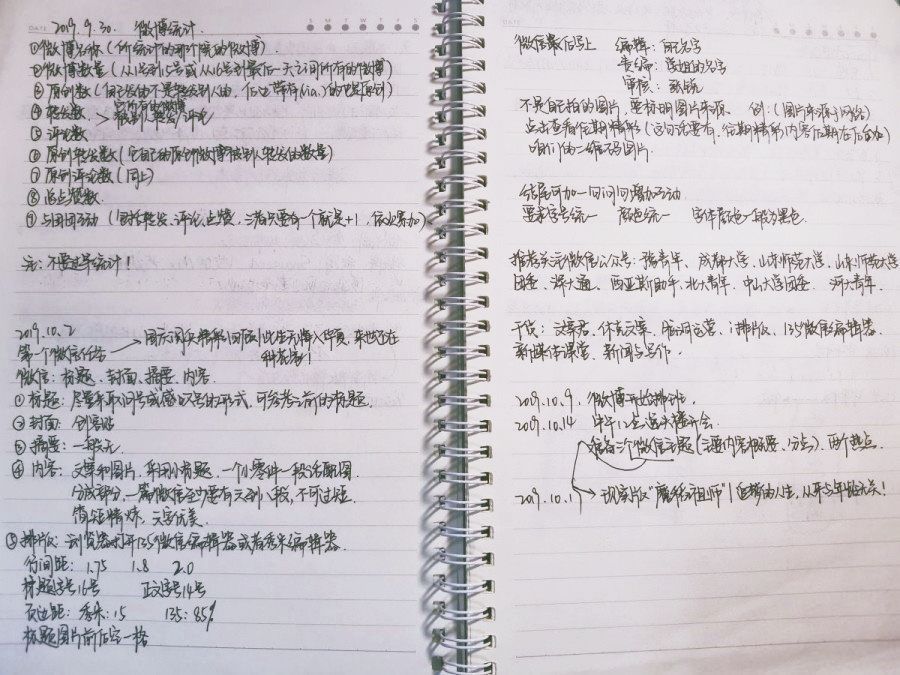 DATE
S M T W T F S
2019.9.30. 微博统计.
①微博名称(所统计的那个度的微博).
②微博数量(从1号到15号或从16号到最后一天之间所有的微博)
③原创数(自己发的不是转发别人的,
④转发数 > 所有的微博
被别人转发、评论
⑤评论数
⑥原创转发数(它自己的原创微博被别人转发的数量)
⑦原创评论数(同上)
⑧总点赞数.
⑨与团团互动(包括转发、评论、点赞. 三者只要有一个就是+1.
注: 不要过早统计!
2019.10.2
第一个微信任务 → 国庆阅兵精彩回顾|此生无悔入华夏, 来世还在
种花家!
微信: 标题、封面、摘要、内容.
①标题: 尽量采取问号或感叹号的形式. 可参考之前的标题.
②封面: 创客贴
③摘要: 一般无
④内容: 文案和图片, 采用小标题. 一个小零件一段话配图
分成部分, 一篇微信至少要有六到八段, 不可过短
简短精炼, 文字优美.
⑤排版: 浏览器打开135微信编辑器或者秀米编辑器.
行间距: 1.75 1.8 2.0
标题字号16号 正文字号14号
页边距: 秀米: 15 135: 85%
标题图片前后空一格
DATE
微信最后写上 编辑:
责编: 学姐的名字
审核:
不是自拍的图片, 要标明图片来源. 例: (图片来源于网络)
点击查看往期精彩(这句话要有, 往期精彩内容后期在下方加)
咱们的二维码图片.
结尾可加一问问问增加互动
要求字号统一 颜色统一 字体颜色一般为黑色.
推荐关注微信公众号: 青年、成都大学、山东师范大学、山东师范大学
团委、泽大通、西亚斯助手、北大青年、中山大学团委. 河大青年.
干货: 文案君、休克文案、脑洞运营、i排版、135微信编辑器.
新媒体课堂、新闻与写作.
2019.10.9. 微博开始排班.
2019.10.14 中午12点 开会
准备三个微信主题(主要内容概要、分点). 两个热点.
2019.10.1 → 现实版“魔道祖师”|追梦的人生, 从来与年龄无关!